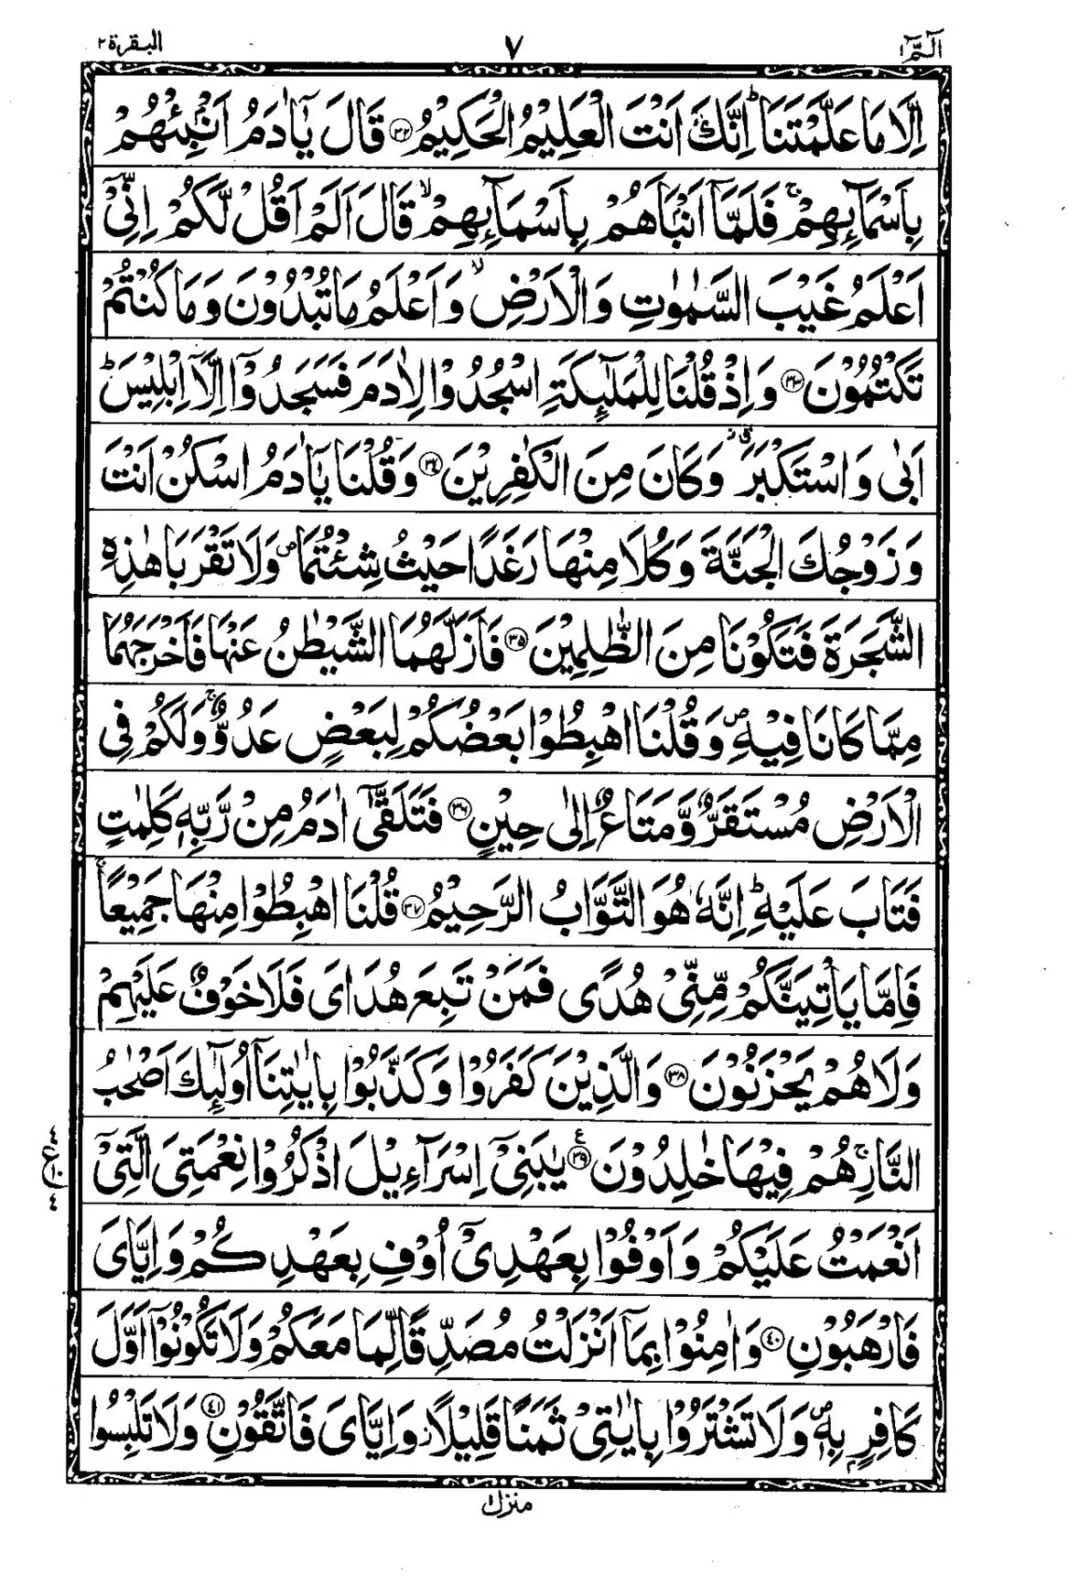 الٓمّٓ ١ ٧ البقرة ٢
اِلَّا مَا عَلَّمْتَنَا ؕ اِنَّكَ اَنْتَ الْعَلِيْمُ الْحَكِيْمُ ﴿۳۲﴾ قَالَ يٰۤاٰدَمُ اَنْۢبِئْهُمْ
بِاَسْمَآئِهِمْ ۚ فَلَمَّاۤ اَنْۢبَاَهُمْ بِاَسْمَآئِهِمْ ۙ قَالَ اَلَمْ اَقُلْ لَّكُمْ اِنِّیْۤ
اَعْلَمُ غَيْبَ السَّمٰوٰتِ وَالْاَرْضِ ۙ وَاَعْلَمُ مَا تُبْدُوْنَ وَمَا كُنْتُمْ
تَكْتُمُوْنَ ﴿۳۳﴾ وَاِذْ قُلْنَا لِلْمَلٰٓئِكَةِ اسْجُدُوْا لِاٰدَمَ فَسَجَدُوْۤا اِلَّاۤ اِبْلِيْسَ ؕ
اَبٰی وَاسْتَكْبَرَ ٭ۗ وَكَانَ مِنَ الْكٰفِرِيْنَ ﴿۳۴﴾ وَقُلْنَا يٰۤاٰدَمُ اسْكُنْ اَنْتَ
وَزَوْجُكَ الْجَنَّةَ وَكُلَا مِنْهَا رَغَدًا حَيْثُ شِئْتُمَا ۪ وَلَا تَقْرَبَا هٰذِهِ
الشَّجَرَةَ فَتَكُوْنَا مِنَ الظّٰلِمِيْنَ ﴿۳۵﴾ فَاَزَلَّهُمَا الشَّيْطٰنُ عَنْهَا فَاَخْرَجَهُمَا
مِمَّا كَانَا فِيْهِ ۪ وَقُلْنَا اهْبِطُوْا بَعْضُكُمْ لِبَعْضٍ عَدُوٌّ ۚ وَلَكُمْ فِی
الْاَرْضِ مُسْتَقَرٌّ وَّمَتَاعٌ اِلٰی حِيْنٍ ﴿۳۶﴾ فَتَلَقّٰۤی اٰدَمُ مِنْ رَّبِّهٖ كَلِمٰتٍ
فَتَابَ عَلَيْهِ ؕ اِنَّهٗ هُوَ التَّوَّابُ الرَّحِيْمُ ﴿۳۷﴾ قُلْنَا اهْبِطُوْا مِنْهَا جَمِيْعًا ۚ
فَاِمَّا يَاْتِيَنَّكُمْ مِّنِّیْ هُدًی فَمَنْ تَبِعَ هُدَایَ فَلَا خَوْفٌ عَلَيْهِمْ
وَلَا هُمْ يَحْزَنُوْنَ ﴿۳۸﴾ وَالَّذِيْنَ كَفَرُوْا وَكَذَّبُوْا بِاٰيٰتِنَاۤ اُولٰٓئِكَ اَصْحٰبُ
النَّارِ ۚ هُمْ فِيْهَا خٰلِدُوْنَ ﴿۳۹﴾ يٰبَنِیْۤ اِسْرَآءِيْلَ اذْكُرُوْا نِعْمَتِیَ الَّتِیْۤ
اَنْعَمْتُ عَلَيْكُمْ وَاَوْفُوْا بِعَهْدِیْۤ اُوْفِ بِعَهْدِكُمْ وَاِيَّایَ
فَارْهَبُوْنِ ﴿۴۰﴾ وَاٰمِنُوْا بِمَاۤ اَنْزَلْتُ مُصَدِّقًا لِّمَا مَعَكُمْ وَلَا تَكُوْنُوْۤا اَوَّلَ
كَافِرٍۭ بِهٖ ۪ وَلَا تَشْتَرُوْا بِاٰيٰتِیْ ثَمَنًا قَلِيْلًا ؗ وَاِيَّایَ فَاتَّقُوْنِ ﴿۴۱﴾ وَلَا تَلْبِسُوا
منزل ۱